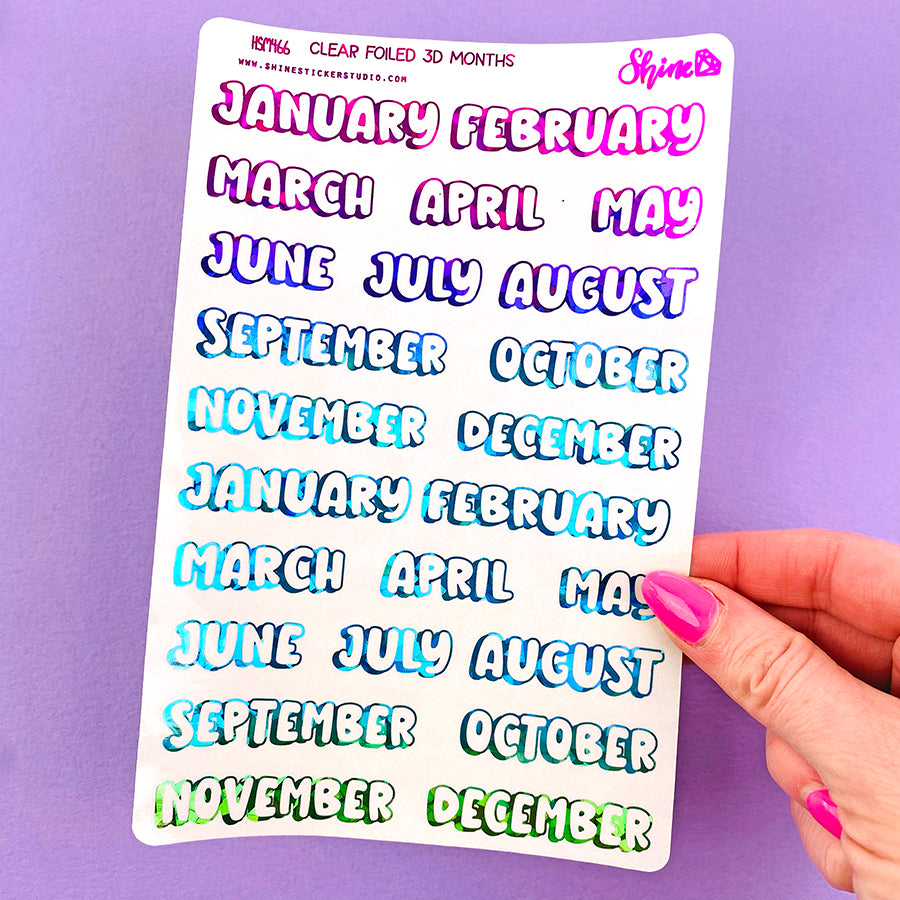 HSM466 CLEAR FOILED 3D MONTHS Shine
WWW.SHINESTICKERSTUDIO.COM
JANUARY FEBRUARY
MARCH APRIL MAY
JUNE JULY AUGUST
SEPTEMBER OCTOBER
NOVEMBER DECEMBER
JANUARY FEBRUARY
MARCH APRIL MAY
JUNE JULY AUGUST
SEPTEMBER OCTOBER
NOVEMBER DECEMBER